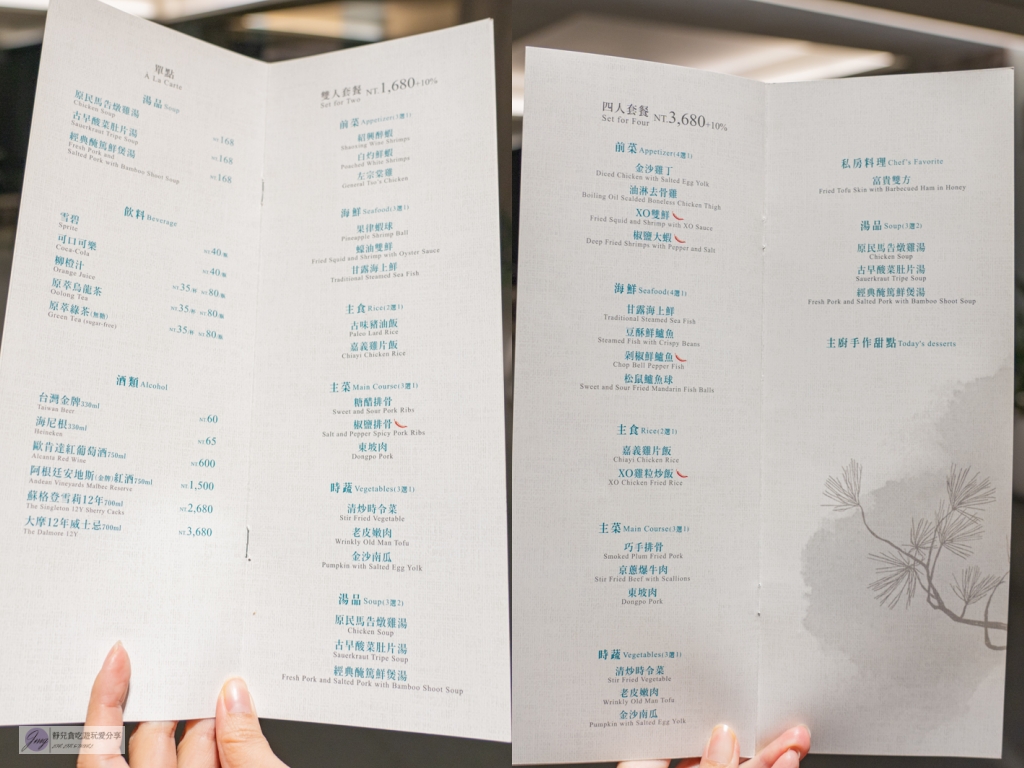 單點
A La Carte
湯品 Soup
原民馬告燉雞湯 NT 168
Chicken Soup
古早酸菜肚片湯 NT 168
Sauerkraut Tripe Soup
經典醃篤鮮煲湯 NT 168
Fresh Pork and
Salted Pork with Bamboo Shoot Soup
飲料 Beverage
雪碧 NT 40/瓶
Sprite
可口可樂 NT 40/瓶
Coca-Cola
柳橙汁 NT 35/杯 NT 80/瓶
Orange Juice
原萃烏龍茶 NT 35/杯 NT 80/瓶
Oolong Tea
原萃綠茶(無糖) NT 35/杯 NT 80/瓶
Green Tea (sugar-free)
酒類 Alcohol
台灣金牌330ml NT 60
Taiwan Beer
海尼根330ml NT 65
Heineken
歐肯達紅葡萄酒750ml NT 600
Alcanta Red Wine
阿根廷安地斯(金牌)紅酒750ml NT 1,500
Andean Vineyards Malbec Reserve
蘇格登雪莉12年700ml NT 2,680
The Singleton 12Y Sherry Cacks
大摩12年威士忌700ml NT 3,680
The Dalmore 12Y
雙人套餐 NT 1,680+10%
Set for Two
前菜 Appetizer(3選1)
紹興醉蝦
Shaoxing Wine Shrimps
白灼鮮蝦
Poached White Shrimps
左宗棠雞
General Tso's Chicken
海鮮 Seafood(3選1)
果律蝦球
Pineapple Shrimp Ball
蠔油雙鮮
Fried Squid and Shrimp with Oyster Sauce
甘露海上鮮
Traditional Steamed Sea Fish
主食 Rice(2選1)
古味豬油飯
Paleo Lard Rice
嘉義雞片飯
Chiayi Chicken Rice
主菜 Main Course(3選1)
糖醋排骨
Sweet and Sour Pork Ribs
椒鹽排骨
Salt and Pepper Spicy Pork Ribs
東坡肉
Dongpo Pork
時蔬 Vegetables(3選1)
清炒時令菜
Stir Fried Vegetable
老皮嫩肉
Wrinkly Old Man Tofu
金沙南瓜
Pumpkin with Salted Egg Yolk
湯品 Soup(3選2)
原民馬告燉雞湯
Chicken Soup
古早酸菜肚片湯
Sauerkraut Tripe Soup
經典醃篤鮮煲湯
Fresh Pork and Salted Pork with Bamboo Shoot Soup
四人套餐 NT 3,680+10%
Set for Four
前菜 Appetizer(4選1)
金沙雞丁
Diced Chicken with Salted Egg Yolk
油淋去骨雞
Boiling Oil Scalded Boneless Chicken Thigh
XO雙鮮
Fried Squid and Shrimp with XO Sauce
椒鹽大蝦
Deep Fried Shrimps with Pepper and Salt
海鮮 Seafood(4選1)
甘露海上鮮
Traditional Steamed Sea Fish
豆酥鮮鱸魚
Steamed Fish with Crispy Beans
剁椒鮮鱸魚
Chop Bell Pepper Fish
松鼠鱸魚球
Sweet and Sour Fried Mandarin Fish Balls
主食 Rice(2選1)
嘉義雞片飯
Chiayi Chicken Rice
XO雞粒炒飯
XO Chicken Fried Rice
主菜 Main Course(3選1)
巧手排骨
Smoked Plum Fried Pork
京蔥爆牛肉
Stir Fried Beef with Scallions
東坡肉
Dongpo Pork
時蔬 Vegetables(3選1)
清炒時令菜
Stir Fried Vegetable
老皮嫩肉
Wrinkly Old Man Tofu
金沙南瓜
Pumpkin with Salted Egg Yolk
私房料理 Chef's Favorite
富貴雙方
Fried Tofu Skin with Barbecued Ham in Honey
湯品 Soup(3選2)
原民馬告燉雞湯
Chicken Soup
古早酸菜肚片湯
Sauerkraut Tripe Soup
經典醃篤鮮煲湯
Fresh Pork and Salted Pork with Bamboo Shoot Soup
主廚手作甜點 Today's desserts
靜兒貪吃遊玩愛分享